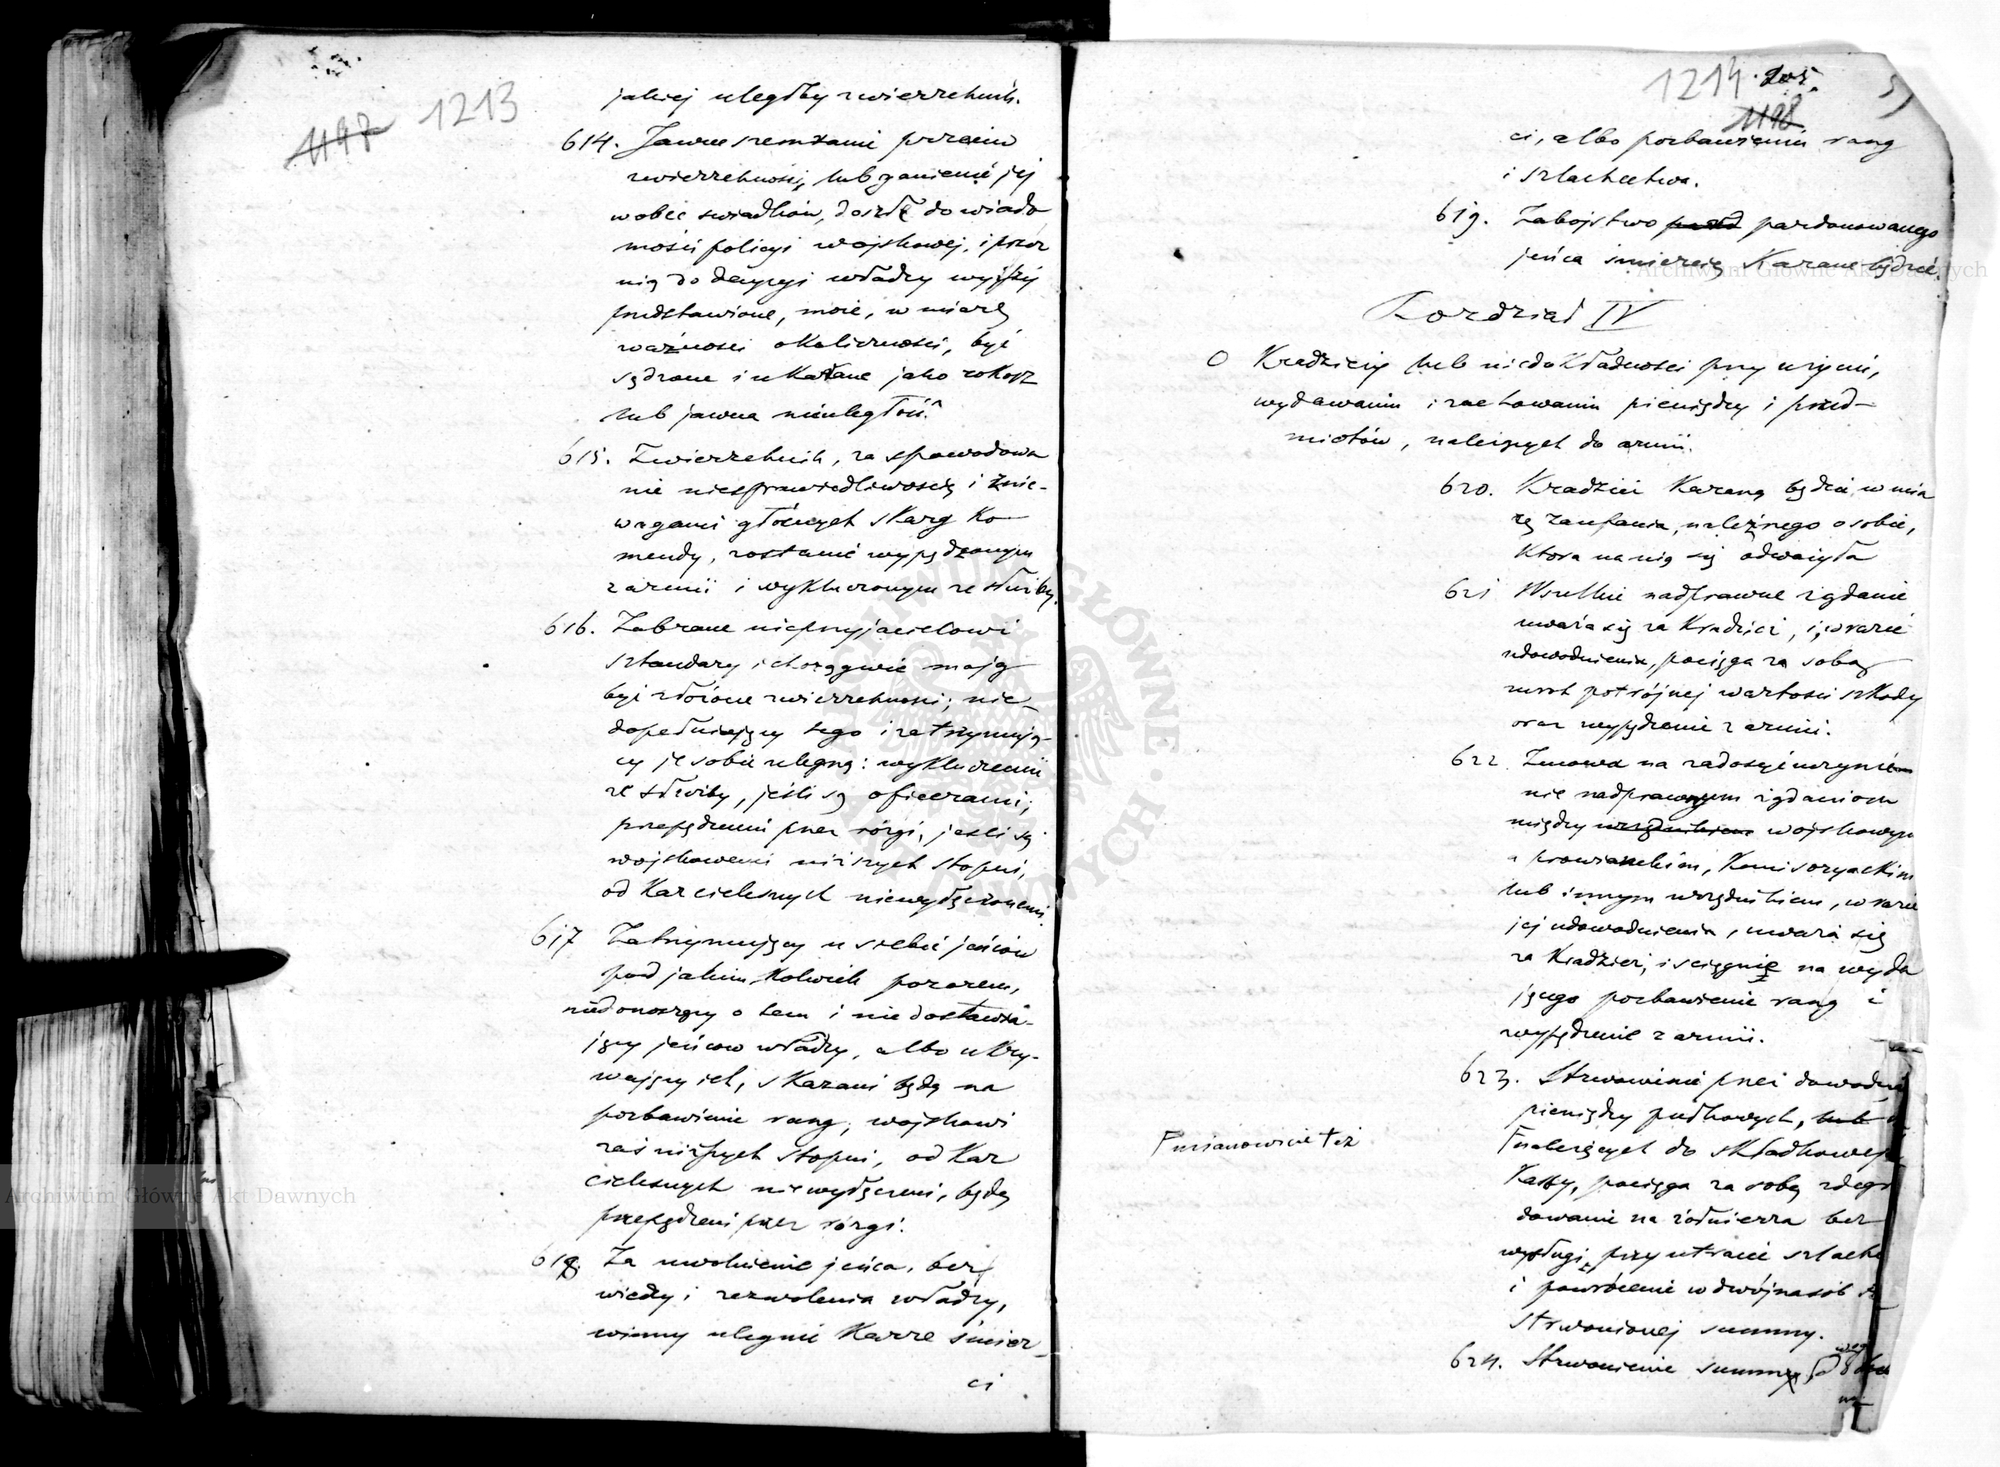 1197 1213
jakiej uległby zwierzchnik.
614. Jawne szemranie przeciw
zwierzchności, lub ganienie jej
wobec swiadków, doszłe do wiado
mości policyi wojskowej, i przez
nią do decyzyi władzy wyższej
przedstawione, może, w miarę
ważności okoliczności, być
sądzone i ukarane jako rokosz
lub jawna nieuległość.
615. Zwierzchnik, za spowodowa
nie niesprawiedliwością i znie-
wagami głównych skarg ko-
mendy, zostanie wypędzonym
z armii i wykluczonym ze służby.
616. Zabrane nieprzyjacielowi
sztandary i chorągwie mają
być złożone zwierzchności; nie-
dopełniający tego i zatrzymują-
cy je sobie ulegną: wykluczeniu
ze służby, jeśli są oficerami;
przepędzeniu przez rózgi, jeśli są
wojskowemi niższych stopni,
od kar cielesnych niewyłączonemi.
617 Zatrzymujący u siebie jeńców
pod jakim kolwiek pozorem,
niedonoszący o tem i niedostawia-
jący jeńcow władzy, albo ukry-
wający ich, skazani będą na
pozbawienie rang; wojskowi
zaś niższych stopni, od kar
cielesnych niewyłączeni, będą
przepędzeni przez rózgi.
618. Za uwolnienie jeńca, bez
wiedzy i zezwolenia władzy,
winny ulegnie karze śmier-
ci
1214 205.
1198
ci, albo pozbawieniu rang
i szlachectwa.
619. Zabojstwo pardonowanego
jeńca śmiercią karane będzie.
Rozdział IV
O Kradzieży lub niedokładności przy użyciu,
wydawaniu i rachowaniu pieniędzy i przed-
miotów, należących do armii.
620. Kradzież karaną będzie, w mia
rę zaufania, należnego osobie,
ktora na nią się odważyła
621 Wszelkie nadprawne żądanie
uważa się za kradzież, i, w razie
udowodnienia, pociąga za sobą
zwrot potrójnej wartości szkody
oraz wypędzenie z armii.
622. Zmowa na zadosyćuczynie-
nie nadprawnym żądaniom
między wojskowym
a prowianckim, komisoryackim
lub innym urzędnikiem, w razie
jej udowodnienia, uważa się
za kradzież, i sciągnie na wyda
jącego pozbawienie rang i
wypędzenie z armii.
623. Strwonienie przez dowódcę
pieniędzy pułkowych, lub
Γ należących do składkowej
Γ mianowicie też
kassy, pociąga za sobą zdegra
dowanie na żołnierza bez
wysługi, przy utracie szlache
i powrócenie w dwójnasób
strwonionej summy.
624. Strwonienie summy,
na
Archiwum Główne Akt Dawnych
Archiwum Główne Akt Dawnych
ARCHIWUM GŁÓWNE AKT DAWNYCH